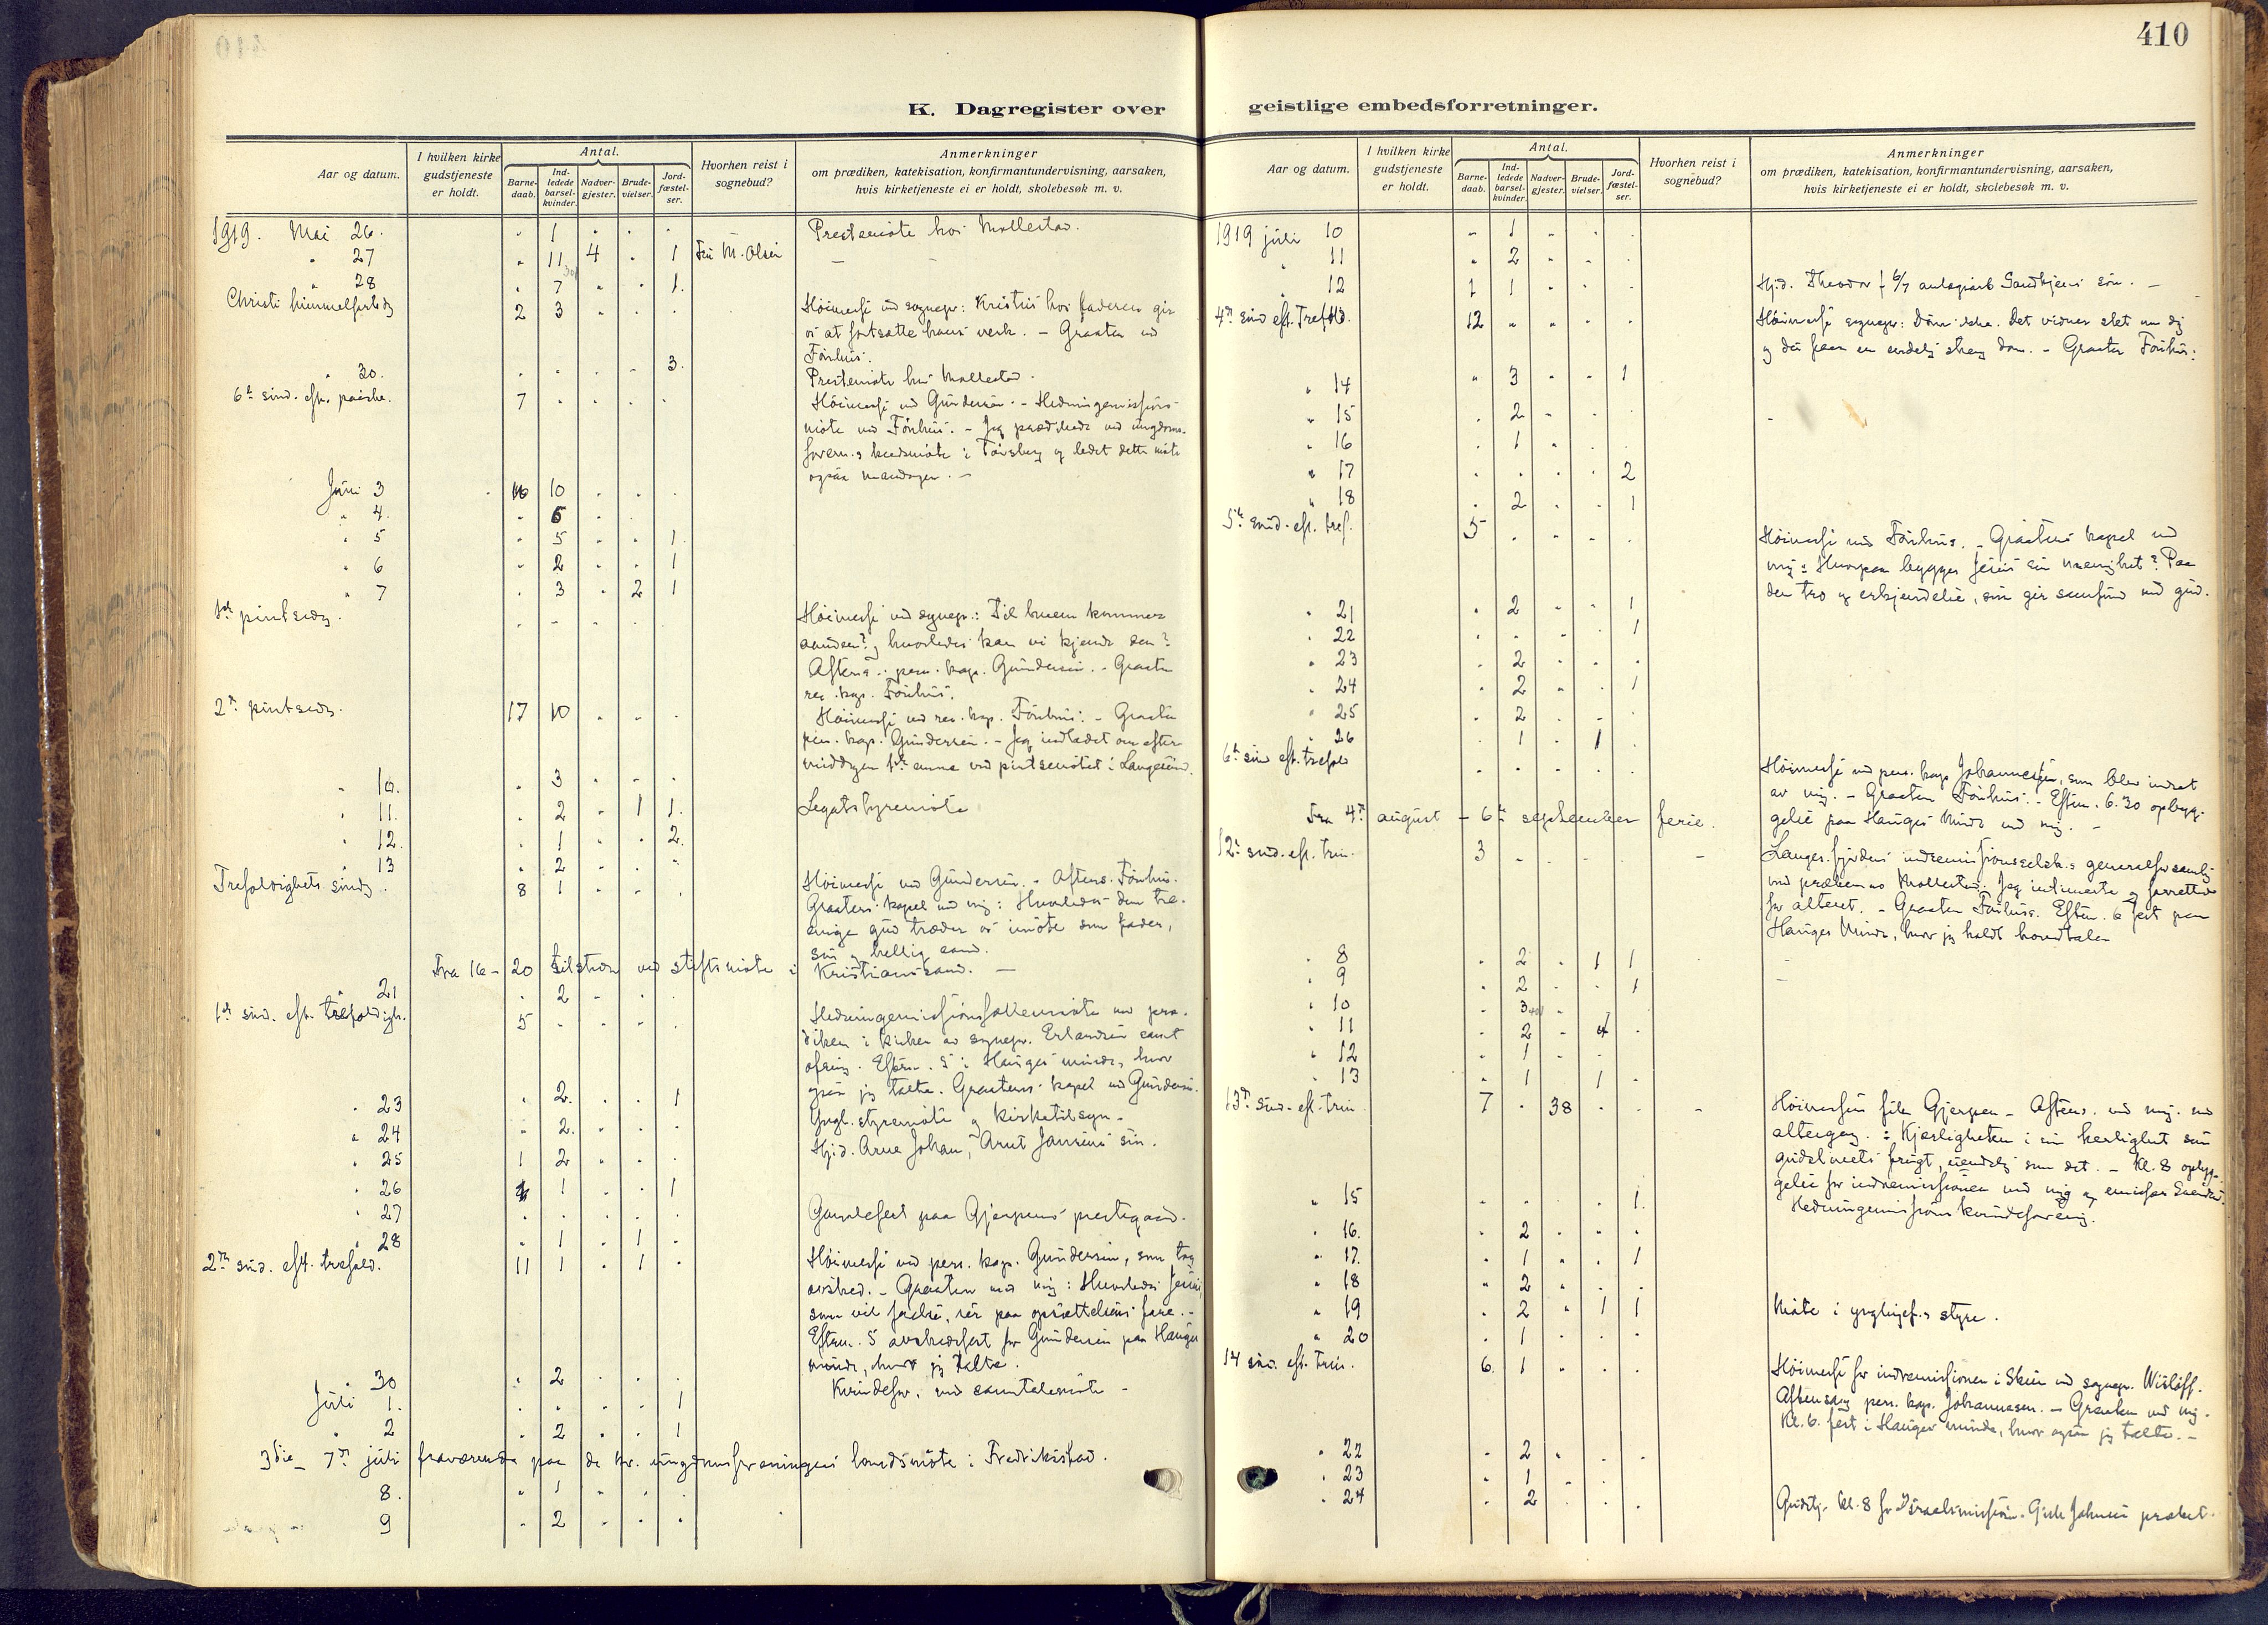 410
K. Dagregister over geistlige embedsforretninger.
Aar og datum. I hvilken kirke gudstjeneste er holdt. Antal. Barne-daab. Ind-ledede barsel-kvinder. Nadver-gjester. Brude-vielser. Jord-fæstel-ser. Hvorhen reist i sognebud? Anmerkninger om prædiken, katekisation, konfirmantundervisning, aarsaken, hvis kirketjeneste ei er holdt, skolebesøk m. v.
1919. Mai 26. 1 Prestemøte hos Mollestad.
" 27 " 11 4 . 1 M. Olsen
" 28 . 7 " . 1.
Christi himmelfartsdg 2 3 Høimesse ved sognepr: Kristus hos faderen gir
os at fortsætte hans verk. - Graaten ved
Fönhus.
" 30. 3. Prestemøte hos Mollestad.
6te sønd. eft. paaske. 7 Høimesse ved Gundersen. - Hedningemissions-
møte ved Fönhus. - Jeg prædikede ved ungdoms-
foren.s kredsmøte i Tønsberg og ledet dette møte
ogsaa mandagen. -
Juni 3 10
" 4. 6
" 5 5 1.
" 6 2 1
" 7 3 2 1
1ste pintsedg. Høimesse ved sognepr.: Til hvem kommer
aanden? og hvorledes kan vi kjende den?
Aftens. pers. kap. Gundersen. - Graaten
res. kap. Fönhus.
2den pintsedg. 17 10 Høimesse ved res. kap. Fönhus. - Graaten
pers. kap. Gundersen. - Jeg indledet om efter-
middagen 1ste emne ved pintsemøtet i Langesund.
" 10. 3
" 11. 2 1 1. Legatstyremøte
" 12. 1 2.
" 13 2
Trefoldighets søndg. 8 1 Høimesse ved Gundersen. - Aftens. Fönhus.
Graatens kapel ved mig: Hvorledes den tre-
enige gud træder os imøte som fader,
søn og hellig aand.
Fra 16 - 20 tilstede ved stiftsmøte i Kristianssand. -
" 21 2
1ste sønd. eft. trefoldigh. 5 Hedningemissionsfællesmøte med præ-
diken i kirken av sognepr. Erlandsen samt
ofring. Efterm. 5 i Hauges minde, hvor
ogsaa jeg talte. Graatens kapel ved Gundersen.
" 23 2. 1 Yngl. styremøte og kirketilsyn.
" 24 2. Hj.d. Arne Johan, Arnt Jansens søn.
" 25 1 2
" 26 1 1
" 27 Gamlefest paa Gjerpens prestegaard.
" 28 1 1
2den sønd. eft. trefold. 11 1 1 Høimesse ved pers. kap. Gundersen, som tog
avsked. - Graaten ved mig: Hvorledes Jesus,
som vil frelse, ser paa opsættelsens fare. -
Efterm. 5 avskedsfest for Gundersen paa Hauges
minde, hvor jeg talte.
" 30 2 Kvindefor. med samtalemøte -
Juli 1. 1
" 2 2 1
3die - 7de juli fraværende paa de kr. ungdomsforeningers landsmøte i Fredrikstad.
8. 1
9 2
Aar og datum. I hvilken kirke gudstjeneste er holdt. Antal. Barne-daab. Ind-ledede barsel-kvinder. Nadver-gjester. Brude-vielser. Jord-fæstel-ser. Hvorhen reist i sognebud? Anmerkninger om prædiken, katekisation, konfirmantundervisning, aarsaken, hvis kirketjeneste ei er holdt, skolebesøk m. v.
1919 juli 10 1
" 11 2
" 12 1 1 Hj.d. Theodor f. 6/7 Sandkjens søn. -
4de sønd eft. Tref. 13. 12 Høimesse sognepr: Døm ikke. Det vidner slet om dig
og du faar en endelig streng dom. - Graaten Fönhus.
" 14 3 1
" 15 2
" 16 1
" 17 2
" 18 2 1
5te sønd. eft. tref. 5 Høimesse ved Fönhus. - Graatens kapel ved
mig: Hvorpaa bygger Jesus sin menighet? Paa
den tro og erkjendelse, som gir samfund med gud.
" 21 2 1
" 22 1
" 23 2
" 24 2 1
" 25 2
" 26 1 1
6te sønd eft. trefold Høimesse ved pers. kap Johannessen, som blev indsat
av mig. - Graaten Fönhus. - Efterm. 6.30 opbyg-
gelse paa Hauges Minde ved mig. -
Fra 4de august - 6te september ferie.
12te sønd. eft. trin. 3 Langes.fjordens indremissionsselsk.s generalforsamlg
med prædiken av Mollestad. Jeg intimerte og forrettet
for alteret. - Graaten Fönhus. Efterm. 6 fest paa
Hauges Minde, hvor jeg holdt hovedtalen
" 8 2 1 1
" 9 2 1
" 10 3
" 11 2
" 12 1
" 13 1 1
13de sønd. eft. trin 7 38 Høimessen Gjerpen - Aftens. ved mig med
altergang: Kjærligheten i sin herlighet som
gudslivets frugt, uendelig som det. - Kl. 8 opbyg-
gelse for indremissionen ved mig og emissær
" 15 1. Hedningemissions kvindeforening.
" 16. 2
" 17. 1 1
" 18 2
" 19 2 1 1 Møte i ynglingef.s styre.
" 20 1
14 sønd. eft. Trin. 6. 1 Høimesse for indremissionen i Skien ved sognepr. Wisløff.
Aftensang pers. kap. Johannessen. - Graaten ved mig.
Kl. 6. fest i Hauges minde, hvor ogsaa jeg talte. -
" 22 2
" 23 1
" 24 2 Gudstj. kl. 8 for Israelsmission. Gisle Johnson prækt.